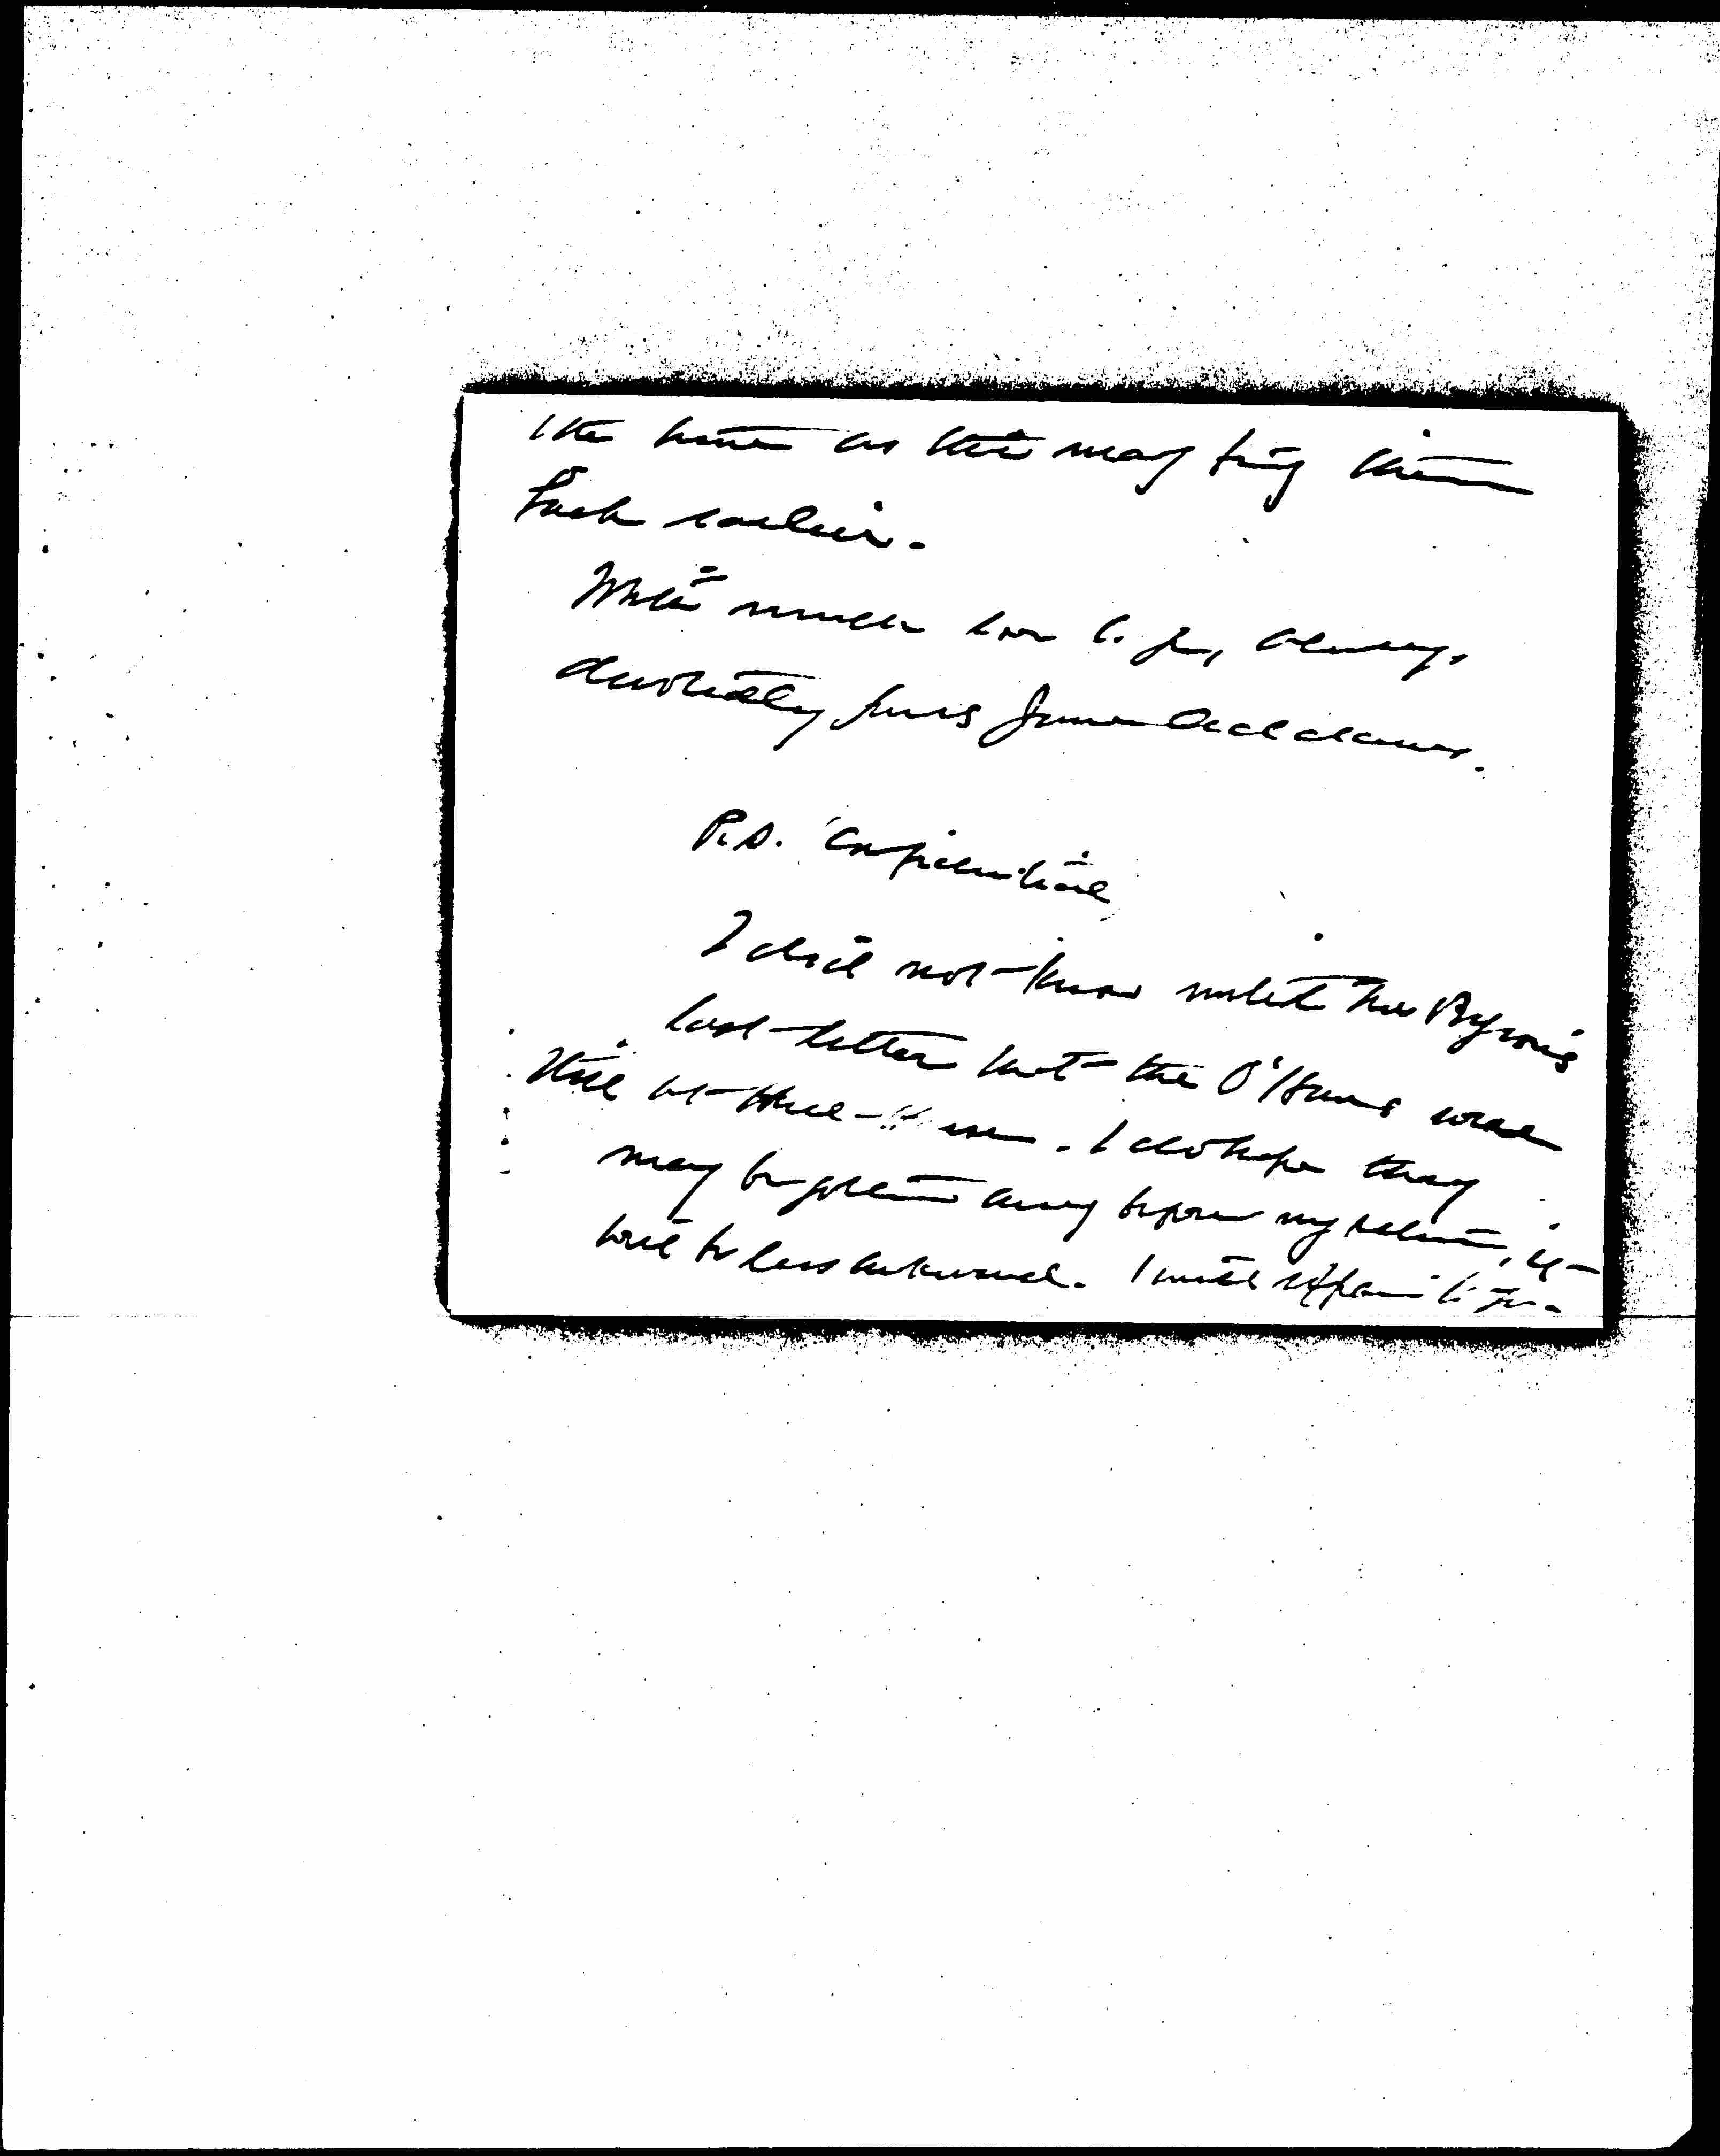 the time as this may bring them
back earlier.
With much love to you, always
devotedly yours Jane Addams.
P.S. Confidential
I did not know until Mrs Byron's
last letter that the O'Haras were
still at Hull-House. I do hope they
may be gotten away before my return, it
will be less awkward. I will explain to you.